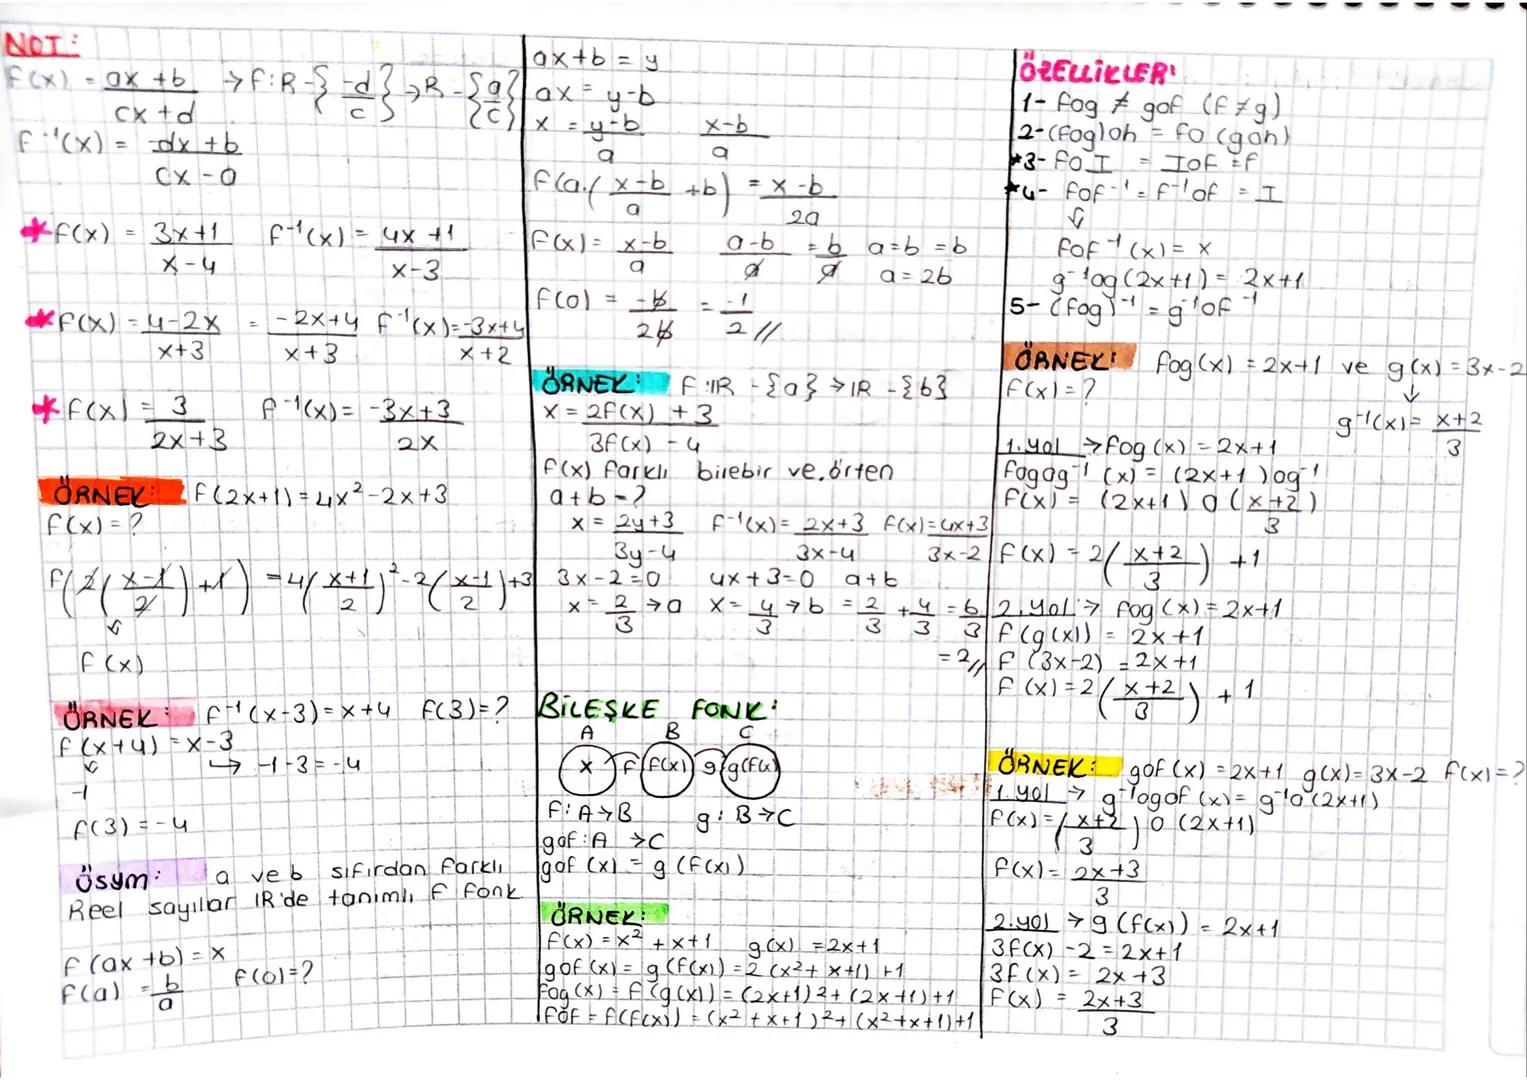 NOT:
f(x) = ax+b / cx+d → f: R-{-d/c} → R-{a/c}
f⁻¹(x) = -dx+b / cx-a
* f(x) = 3x+1 / x-4   f⁻¹(x) = 4x+1 / x-3
* f(x) = 4-2x / x+3 = -2x+4 / x+3   f⁻¹(x) = -3x+4 / x+2
* f(x) = 3 / 2x+3   f⁻¹(x) = -3x+3 / 2x
ÖRNEK: f(2x+1) = 4x²-2x+3
f(x) = ?
f(2(x-1 / 2)+1) = 4(x+1 / 2)² - 2(x-1 / 2)+3
↓
f(x)
ÖRNEK: f⁻¹(x-3) = x+4   f(3) = ?
f(x+4) = x-3
↓ ↳ -1-3 = -4
-1
f(3) = -4
Ösym: a ve b sıfırdan farklı
Reel sayılar IR'de tanımlı f fonk
f(ax+b) = x
f(a) = b/a   f(0) = ?
ax+b = y
ax = y-b
x = y-b / a   x-b / a
f(a.(x-b / a +b) = x-b / 2a
f(x) = x-b / a   a-b / a = b / a   a=b =b
a = 2b
f(0) = -b / 2b = -1 / 2 //
ÖRNEK: F: IR -{a} → IR -{b}
x = 2f(x)+3 / 3f(x)-4
f(x) farklı birebir ve örten
a+b = ?
x = 2y+3 / 3y-4   f⁻¹(x) = 2x+3 / 3x-4   f(x) = 4x+3 / 3x-2
3x-2=0   4x+3=0   a+b
x = 2/3 → a   x = 4/3 → b   = 2/3 + 4/3 = 6/3
= 2 //
BİLEŞKE FONK:
A B C
x f f(x) g g(f(x)
f: A→B   g: B→C
gof: A → C
gof(x) = g(f(x))
ÖRNEK:
f(x) = x²+x+1   g(x) = 2x+1
gof(x) = g(f(x)) = 2(x²+x+1)+1
fog(x) = f(g(x)) = (2x+1)²+(2x+1)+1
fof = f(f(x)) = (x²+x+1)²+(x²+x+1)+1
ÖZELLİKLER:
1- fog ≠ gof (f≠g)
2- (fog)oh = fo(goh)
*3- foI = Iof = f
*4- fof⁻¹ = f⁻¹of = I
↓
fof⁻¹(x) = x
g⁻¹og(2x+1) = 2x+1
5- (fog)⁻¹ = g⁻¹of⁻¹
ÖRNEK: fog(x) = 2x+1 ve g(x) = 3x-2
f(x) = ? ↓
g⁻¹(x) = x+2 / 3
1.yol → fog(x) = 2x+1
fogog⁻¹(x) = (2x+1)og⁻¹
f(x) = (2x+1) o (x+2 / 3)
f(x) = 2(x+2 / 3) +1
2.yol: → fog(x) = 2x+1
f(g(x)) = 2x+1
f(3x-2) = 2x+1
f(x) = 2(x+2 / 3) + 1
ÖRNEK: gof(x) = 2x+1   g(x) = 3x-2   f(x) = ?
1.yol → g⁻¹ogof(x) = g⁻¹o(2x+1)
f(x) = (x+2 / 3) o (2x+1)
f(x) = 2x+3 / 3
2.yol → g(f(x)) = 2x+1
3f(x)-2 = 2x+1
3f(x) = 2x+3
f(x) = 2x+3 / 3